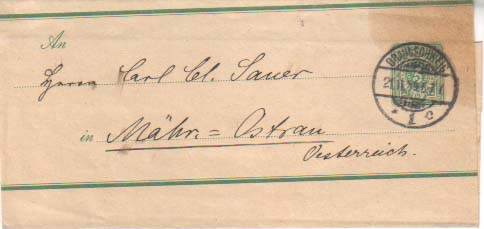 An
Herrn Carl Cl. Sauer
in Mähr.=Ostrau
Oesterreich.